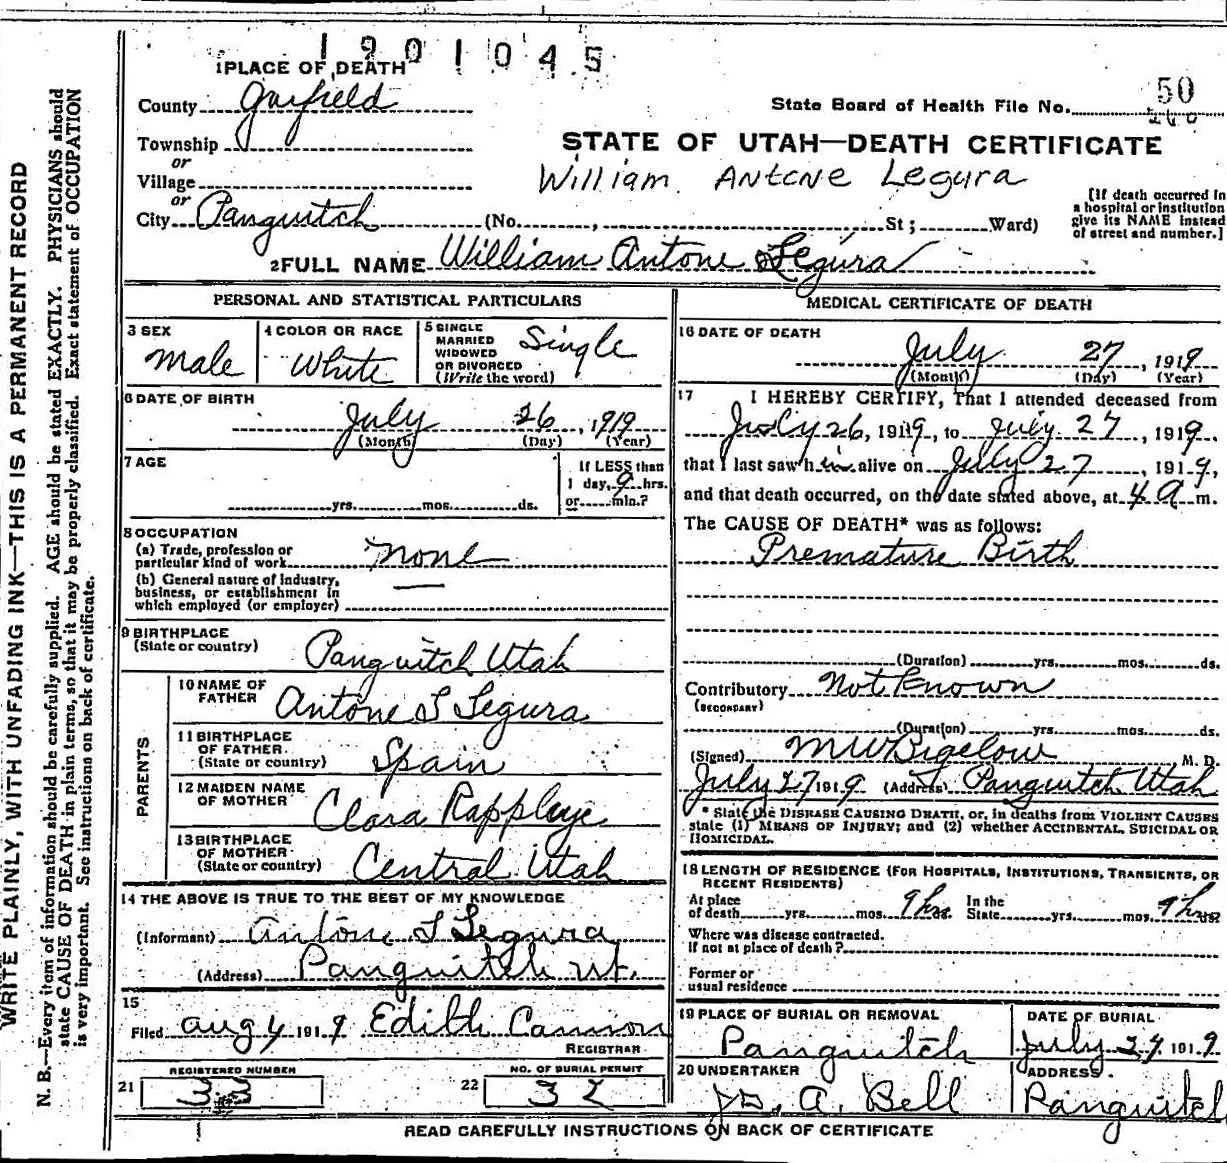 1901045
1 PLACE OF DEATH
County Garfield
State Board of Health File No. 50
Township
or
STATE OF UTAH—DEATH CERTIFICATE
Village
William Antone Segura
or
City Panguitch (No. , St ; Ward)
[If death occurred in
a hospital or institution
give its NAME instead
of street and number.]
2 FULL NAME William Antone Segura
PERSONAL AND STATISTICAL PARTICULARS
3 SEX
Male
4 COLOR OR RACE
White
5 SINGLE
MARRIED
WIDOWED
OR DIVORCED
(Write the word)
Single
6 DATE OF BIRTH
July 26, 1919
(Month) (Day) (Year)
7 AGE
yrs. mos. ds.
If LESS than
1 day, 9 hrs.
or min.?
8 OCCUPATION
(a) Trade, profession or
particular kind of work none
(b) General nature of industry,
business, or establishment in
which employed (or employer)
9 BIRTHPLACE
(State or country) Panguitch Utah
PARENTS
10 NAME OF
FATHER Antone S Segura
11 BIRTHPLACE
OF FATHER
(State or country) Spain
12 MAIDEN NAME
OF MOTHER Clara Rappleye
13 BIRTHPLACE
OF MOTHER
(State or country) Central Utah
14 THE ABOVE IS TRUE TO THE BEST OF MY KNOWLEDGE
(Informant) Antone S Segura
(Address) Panguitch Ut.
15
Filed Aug 4 1919 Edith Cannon
REGISTRAR
REGISTERED NUMBER
21 33
NO. OF BURIAL PERMIT
22 32
MEDICAL CERTIFICATE OF DEATH
16 DATE OF DEATH
July 27, 1919
(Month) (Day) (Year)
17 I HEREBY CERTIFY, That I attended deceased from
July 26, 1919, to July 27, 1919,
that I last saw him alive on July 27, 1919,
and that death occurred, on the date stated above, at 4 a m.
The CAUSE OF DEATH* was as follows:
Premature Birth
(Duration) yrs. mos. ds.
Contributory Not Known
(SECONDARY)
(Duration) yrs. mos. ds.
(Signed) M W Bigelow M. D.
July 27 1919 (Address) Panguitch Utah
* State the DISEASE CAUSING DEATH, or, in deaths from VIOLENT CAUSES
state (1) MEANS OF INJURY; and (2) whether ACCIDENTAL, SUICIDAL OR
HOMICIDAL.
18 LENGTH OF RESIDENCE (FOR HOSPITALS, INSTITUTIONS, TRANSIENTS, OR
RECENT RESIDENTS)
At place
of death yrs. mos. 9 hrs. In the
State yrs. mos. 9 hrs
Where was disease contracted.
If not at place of death ?
Former or
usual residence
19 PLACE OF BURIAL OR REMOVAL
Panguitch
DATE OF BURIAL
July 27 1919
20 UNDERTAKER
A. Bell
ADDRESS
Panguitch
READ CAREFULLY INSTRUCTIONS ON BACK OF CERTIFICATE
WRITE PLAINLY, WITH UNFADING INK—THIS IS A PERMANENT RECORD
N. B.—Every item of information should be carefully supplied. AGE should be stated EXACTLY. PHYSICIANS should
state CAUSE OF DEATH in plain terms, so that it may be properly classified. Exact statement of OCCUPATION
is very important. See instructions on back of certificate.